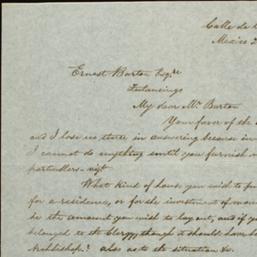 Calle de
Mexico
Ernest Burton Esqre
Tulancingo
My dear Mr. Burton
Your favor of the
and I lose no time in answering because in
I cannot do anything until you furnish
particulars. viz
What kind of house you wish to
for a residence, or for the investment of
be the amount you wish to lay out, and if you
belonged to the Clergy, though it should have
Archbishop? also as to the situation &c.